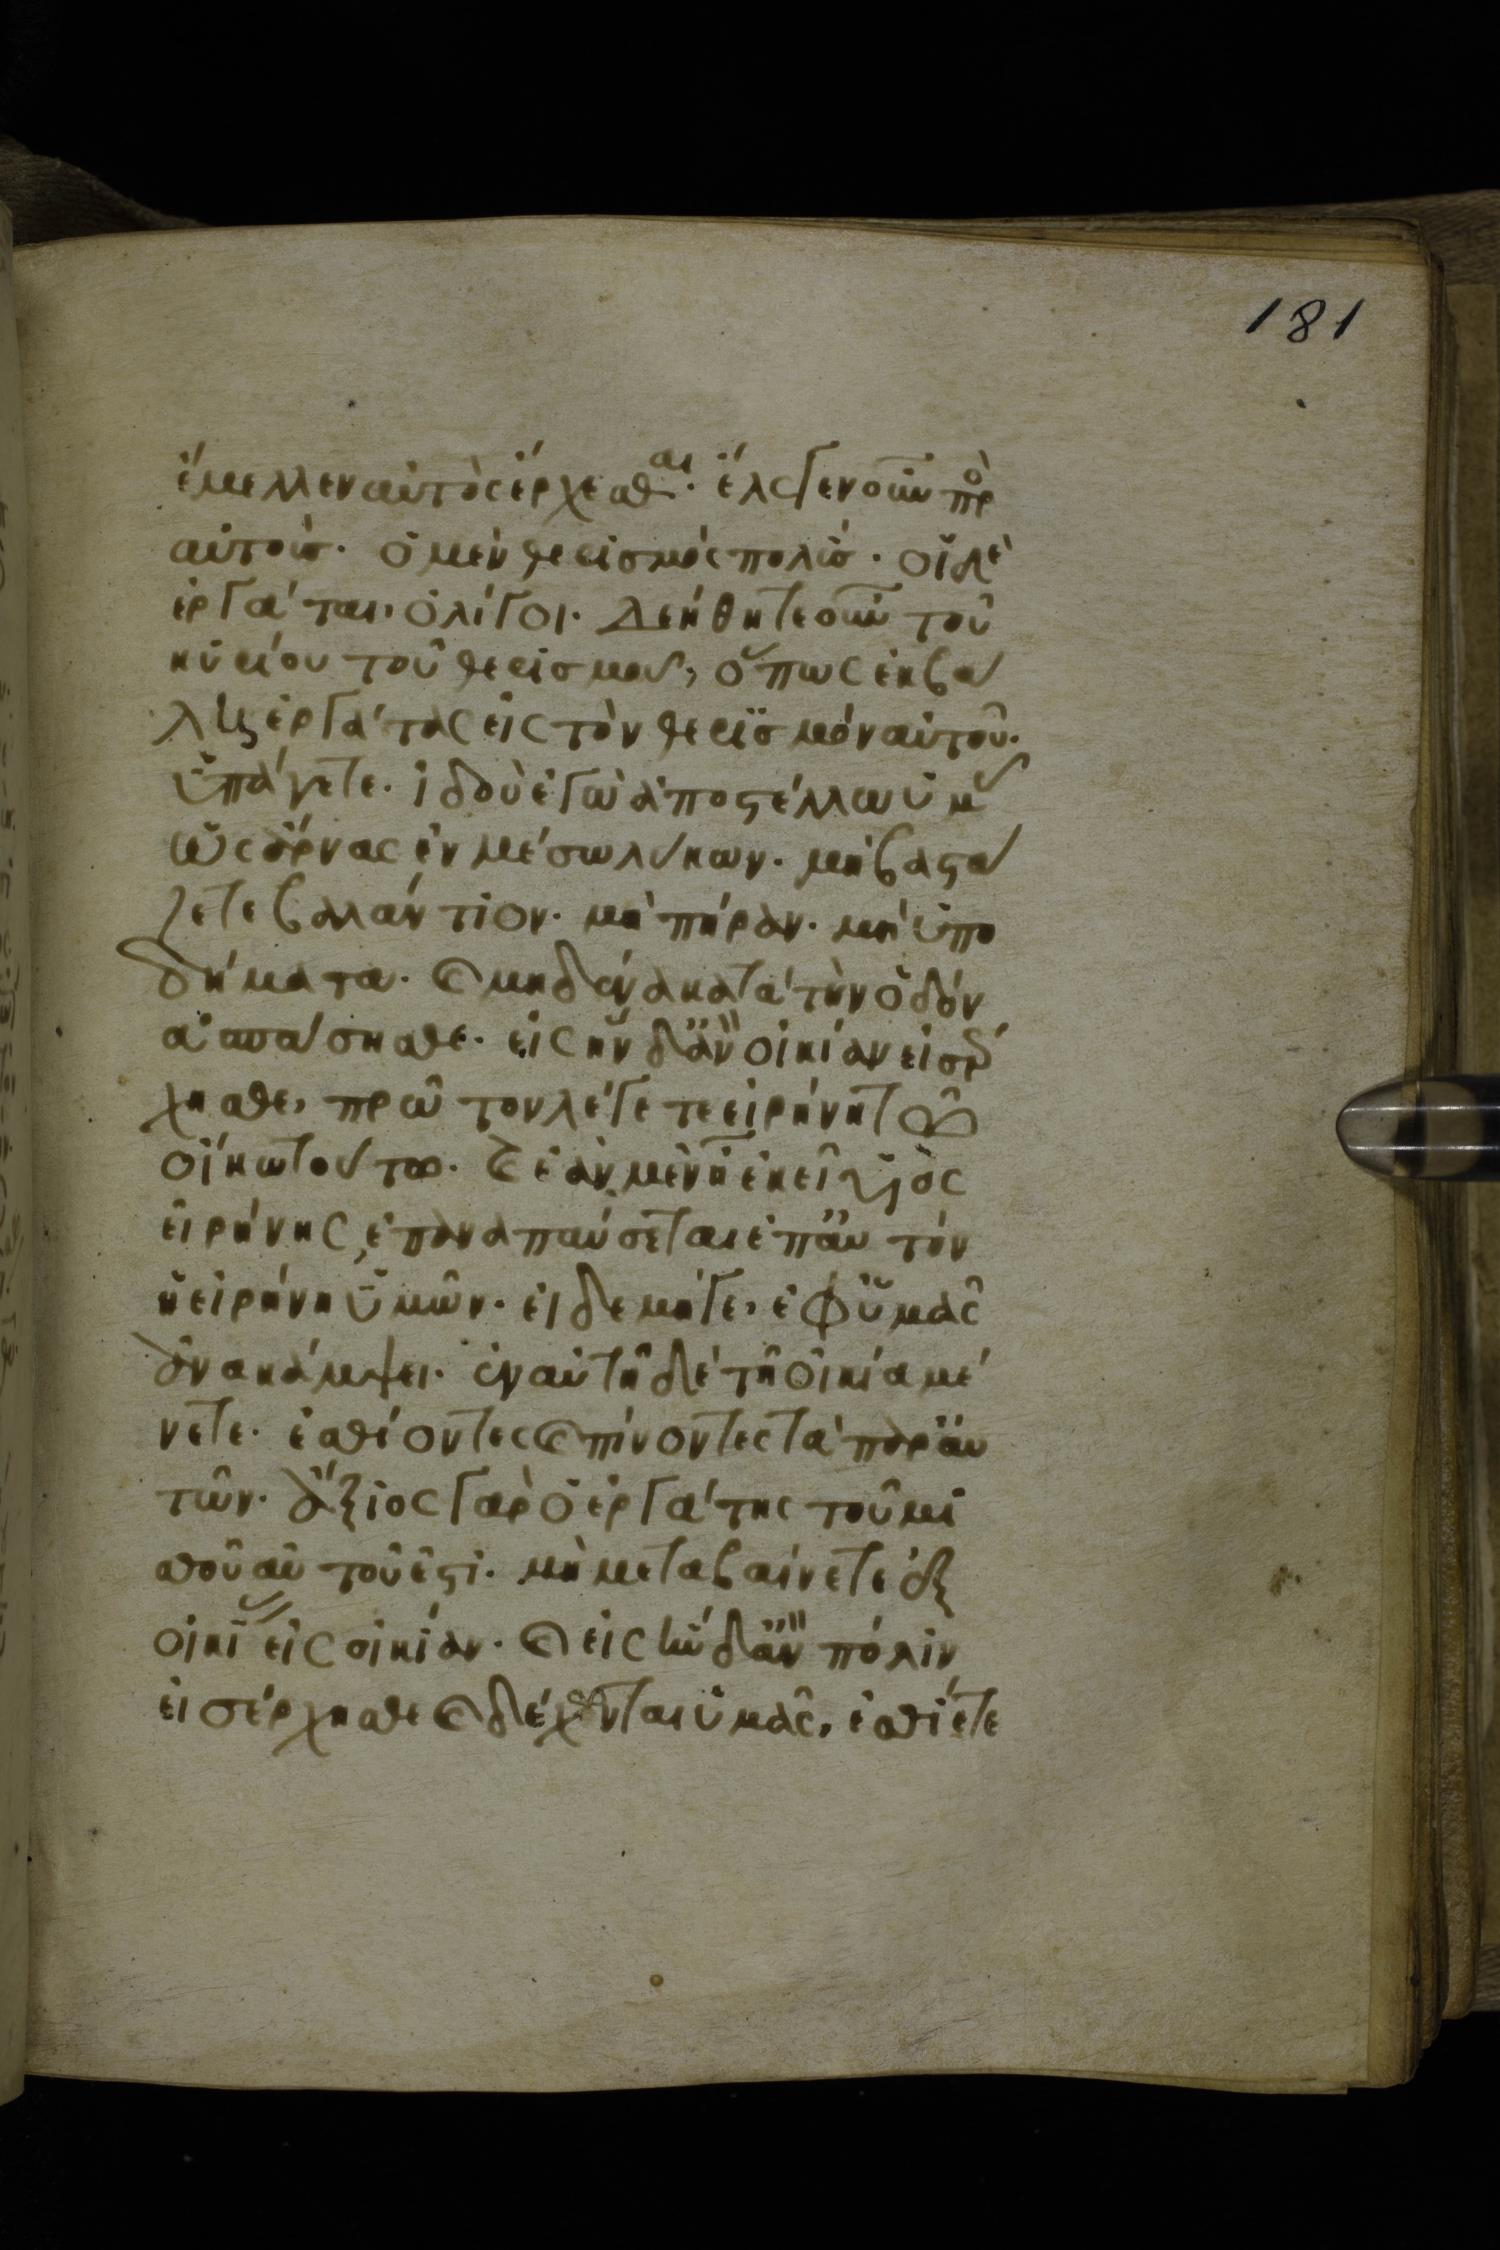 181
ἔμελλεν αὐτὸς ἔρχεσθαι· ἔλεγεν οὖν πρὸ
αὐτούς· ὁ μὲν θερισμός πολύς· οἱ δὲ
ἐργάται, ὀλίγοι· Δεήθητε οὖν τοῦ
κυρίου τοῦ θερισμοῦ, ὅπως ἐκβά
λῃ ἐργάτας εἰς τὸν θερισμόν αὐτοῦ·
ὑπάγετε· ἰδοὺ ἐγὼ ἀποστέλλω ὑμᾶς
ὡς ἄρνας ἐν μέσω λύκων· μὴ βαστά
ζετε βαλάντιον· μὴ πήραν· μὴ ὑπο
δήματα· καὶ μηδένα κατὰ τὴν ὁδόν
ἀσπάσησθε· εἰς ἣν δ' ἂν οἰκίαν εἰσέρ
χησθε, πρῶτον λέγετε εἰρήνη τῶ
οἴκω τούτω· καὶ ἐὰν μὲν ἦ ἐκεῖ υἱὸς
εἰρήνης, ἐπαναπαύσεται ἐπ' αὐτόν
ἡ εἰρήνη ὑμῶν· εἰ δε μήγε, ἐφ' ὑμᾶς
ἀνακάμψει· ἐν αὐτῆ δὲ τῆ οἰκία μέ
νετε· ἐσθίοντες καὶ πίνοντες τὰ παρ' αὐ
τῶν· ἄξιος γὰρ ὁ ἐργάτης τοῦ μι
σθοῦ αὐτοῦ ἐστι· μὴ μεταβαίνετε ἐξ
οἰκίας εἰς οἰκίαν· καὶ εἰς ἣν δ' ἂν πόλιν
εἰσέρχησθε καὶ δέχωνται ὑμᾶς, ἐσθίετε